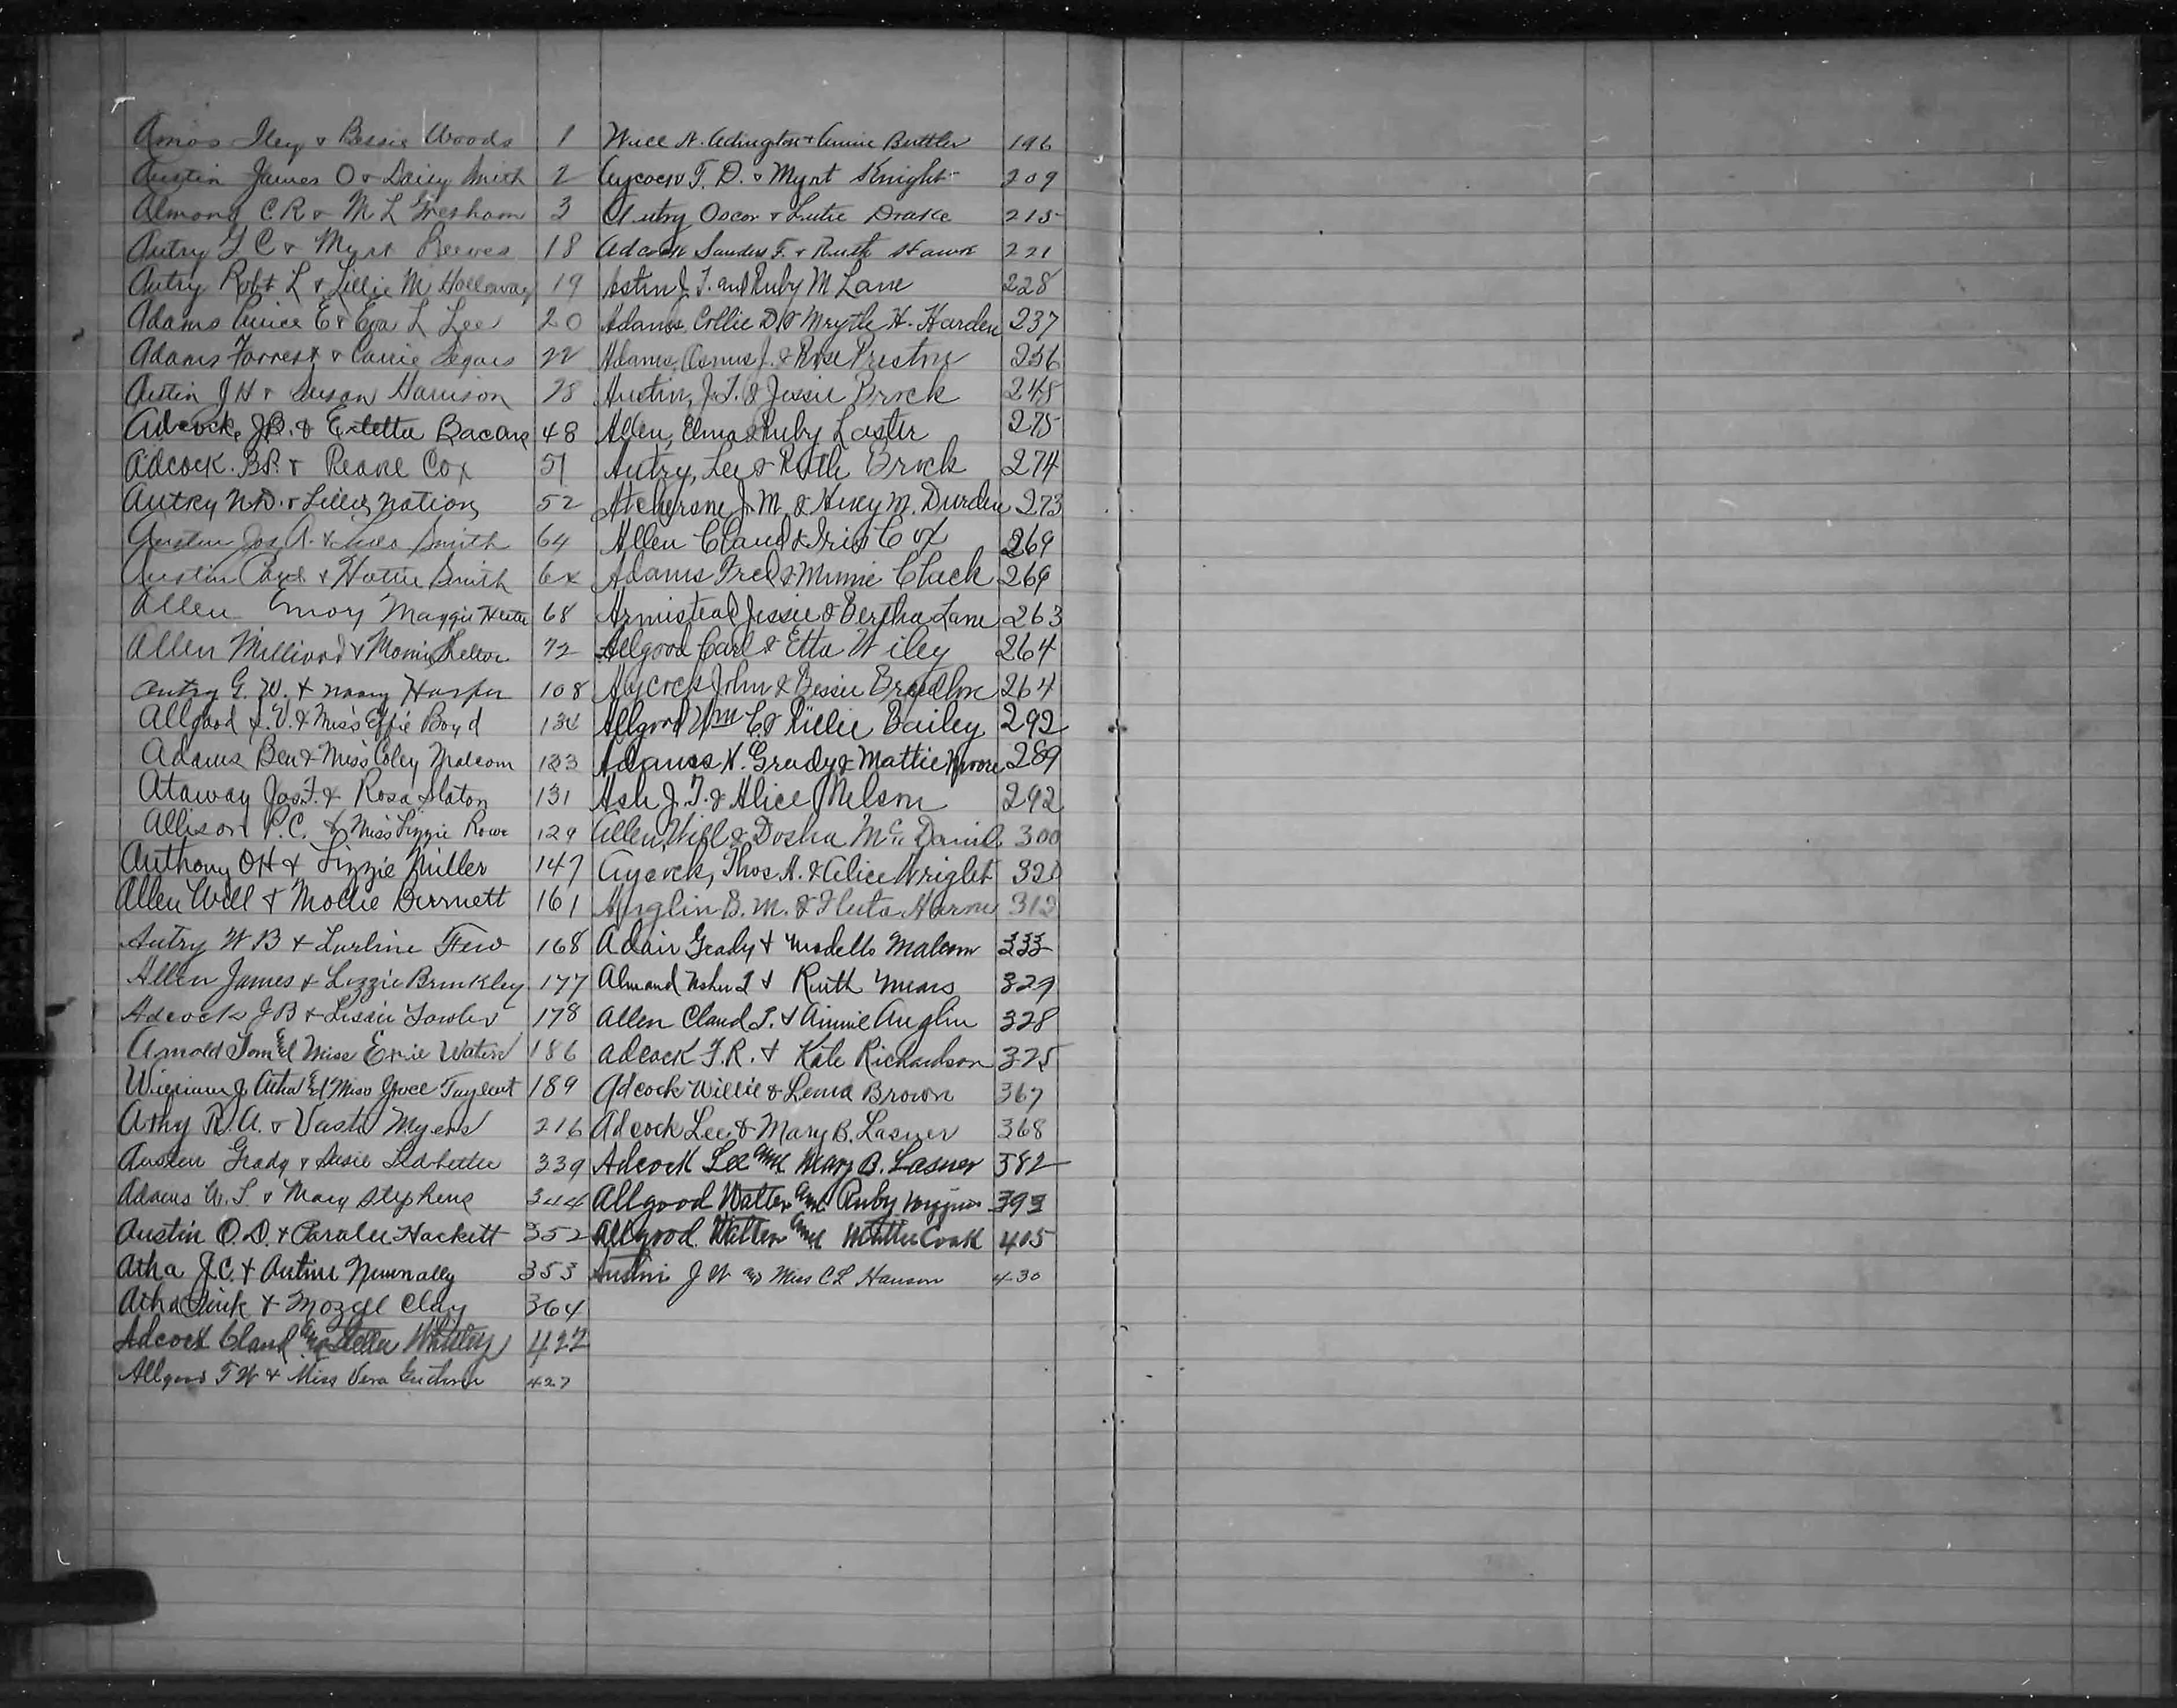 Amos Iley & Bessie Woods 1
Austin James O & Daisy Smith 2
Almond C R & M L Gresham 3
Autry G C & Myrt Reeves 18
Autry Robt L & Lillie M Holloway 19
Adams E & Eva L Lee 20
Adams Forrest & Carrie Segars 22
Austin J H & Susan Harrison 28
Adcock, J.B. & Estetta 48
Adcock. & Cox 51
Autry N.D. & Lillie Nations 52
Austin Jos A. & Smith 64
Austin & Hattie Smith
Allen Emory Maggie 68
Allen Milliard & Shelton 72
Autry G. W. & Harper 108
Allgood & Miss Effie Boyd
Adams Ben & Miss Coley Malcom
Ataway Jas. F. & Rosa Slaton 131
Allison P.C. & Miss Lizzie Rowe 129
Anthony OH & Lizzie Miller 147
Allen Will & Mollie Durnett 161
Autry W B & Lurline Few 168
Allen James & Lizzie Brinkley 177
Adcock J B & Lessie 178
Arnold Tom and Miss Waters 186
William J. Atha and Miss Grace 189
Athy R. A. & Vasta Myers 216
Austin Grady & Susie Ledbetter 339
Adams W. & Mary Stephens 344
Austin O. D. & Hackett 352
Atha J.C. & Nunnally 353
Atha & Mozell Clay 364
Adcock Claud and
Allgood T W & Miss Vera 427
Will A. Adington & Annie Buttler 196
Aycock T. D. & Myrt Knight 209
Autry Oscar & Lutie Drake 215
Adcock Sanders F. & Ruth Hawk 221
Astin J. T. and Ruby M Lane 228
Adams, Collie D. & Mrytle H. Harden 237
Adams, J. & Rose Preston
Austin, J. T. & Jessie Brock 245
Allen, Elma & Ruby Laster 275
Autry, Lee & Ruth Brock 274
J. M. & M. Durden 273
Allen Claud & Iris Cox 269
Adams Fred & Minnie Clack 269
Armistead Jessie & Bertha Lane 263
Allgood Carl & Etta Wiley 264
Aycock John & Bessie 264
Allgood Wm C. & Bailey 292
Adams N. Grady & Mattie Moore 289
Ash J. T. & Alice Nelson 292
Allen, Will & Dosha McDaniel 300
Aycock, Thos A. & Alice Wright 320
Anglin B. M. &
Adair Grady & Modello Malcom 333
Almand & Ruth Mears 329
Allen Claud T. & Annie Anglin 328
Adcock F. R. & Kate Richardson 375
Adcock Willie & Lena Brown 367
Adcock Lee & Mary B. Lasner 368
Adcock Lee and Mary B. Lasner 382
Allgood Walter and Ruby 393
Allgood Walter and Mattie Cook 405
Austin J W and Miss C L Hanson 430